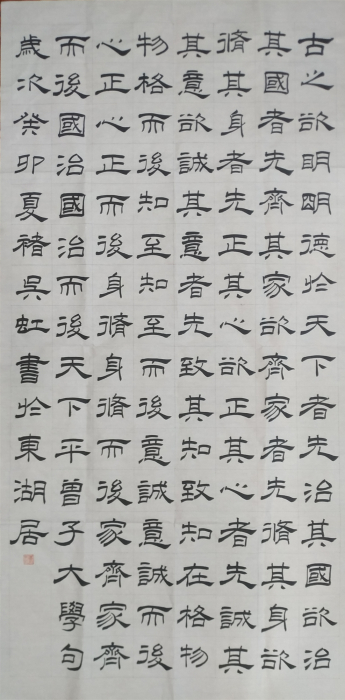 古之欲明朙德於天下者先治其國欲治
其國者先齊其家欲齊家者先脩其身欲
脩其身者先正其心欲正其心者先誠其
其意欲誠其意者先致其知致知在格物
物格而後知至知至而後意誠意誠而後
心正心正而後身脩身脩而後家齊家齊
而後國治國治而後天下平曾子大學句
歲次癸卯夏褚吳虹書於東湖居